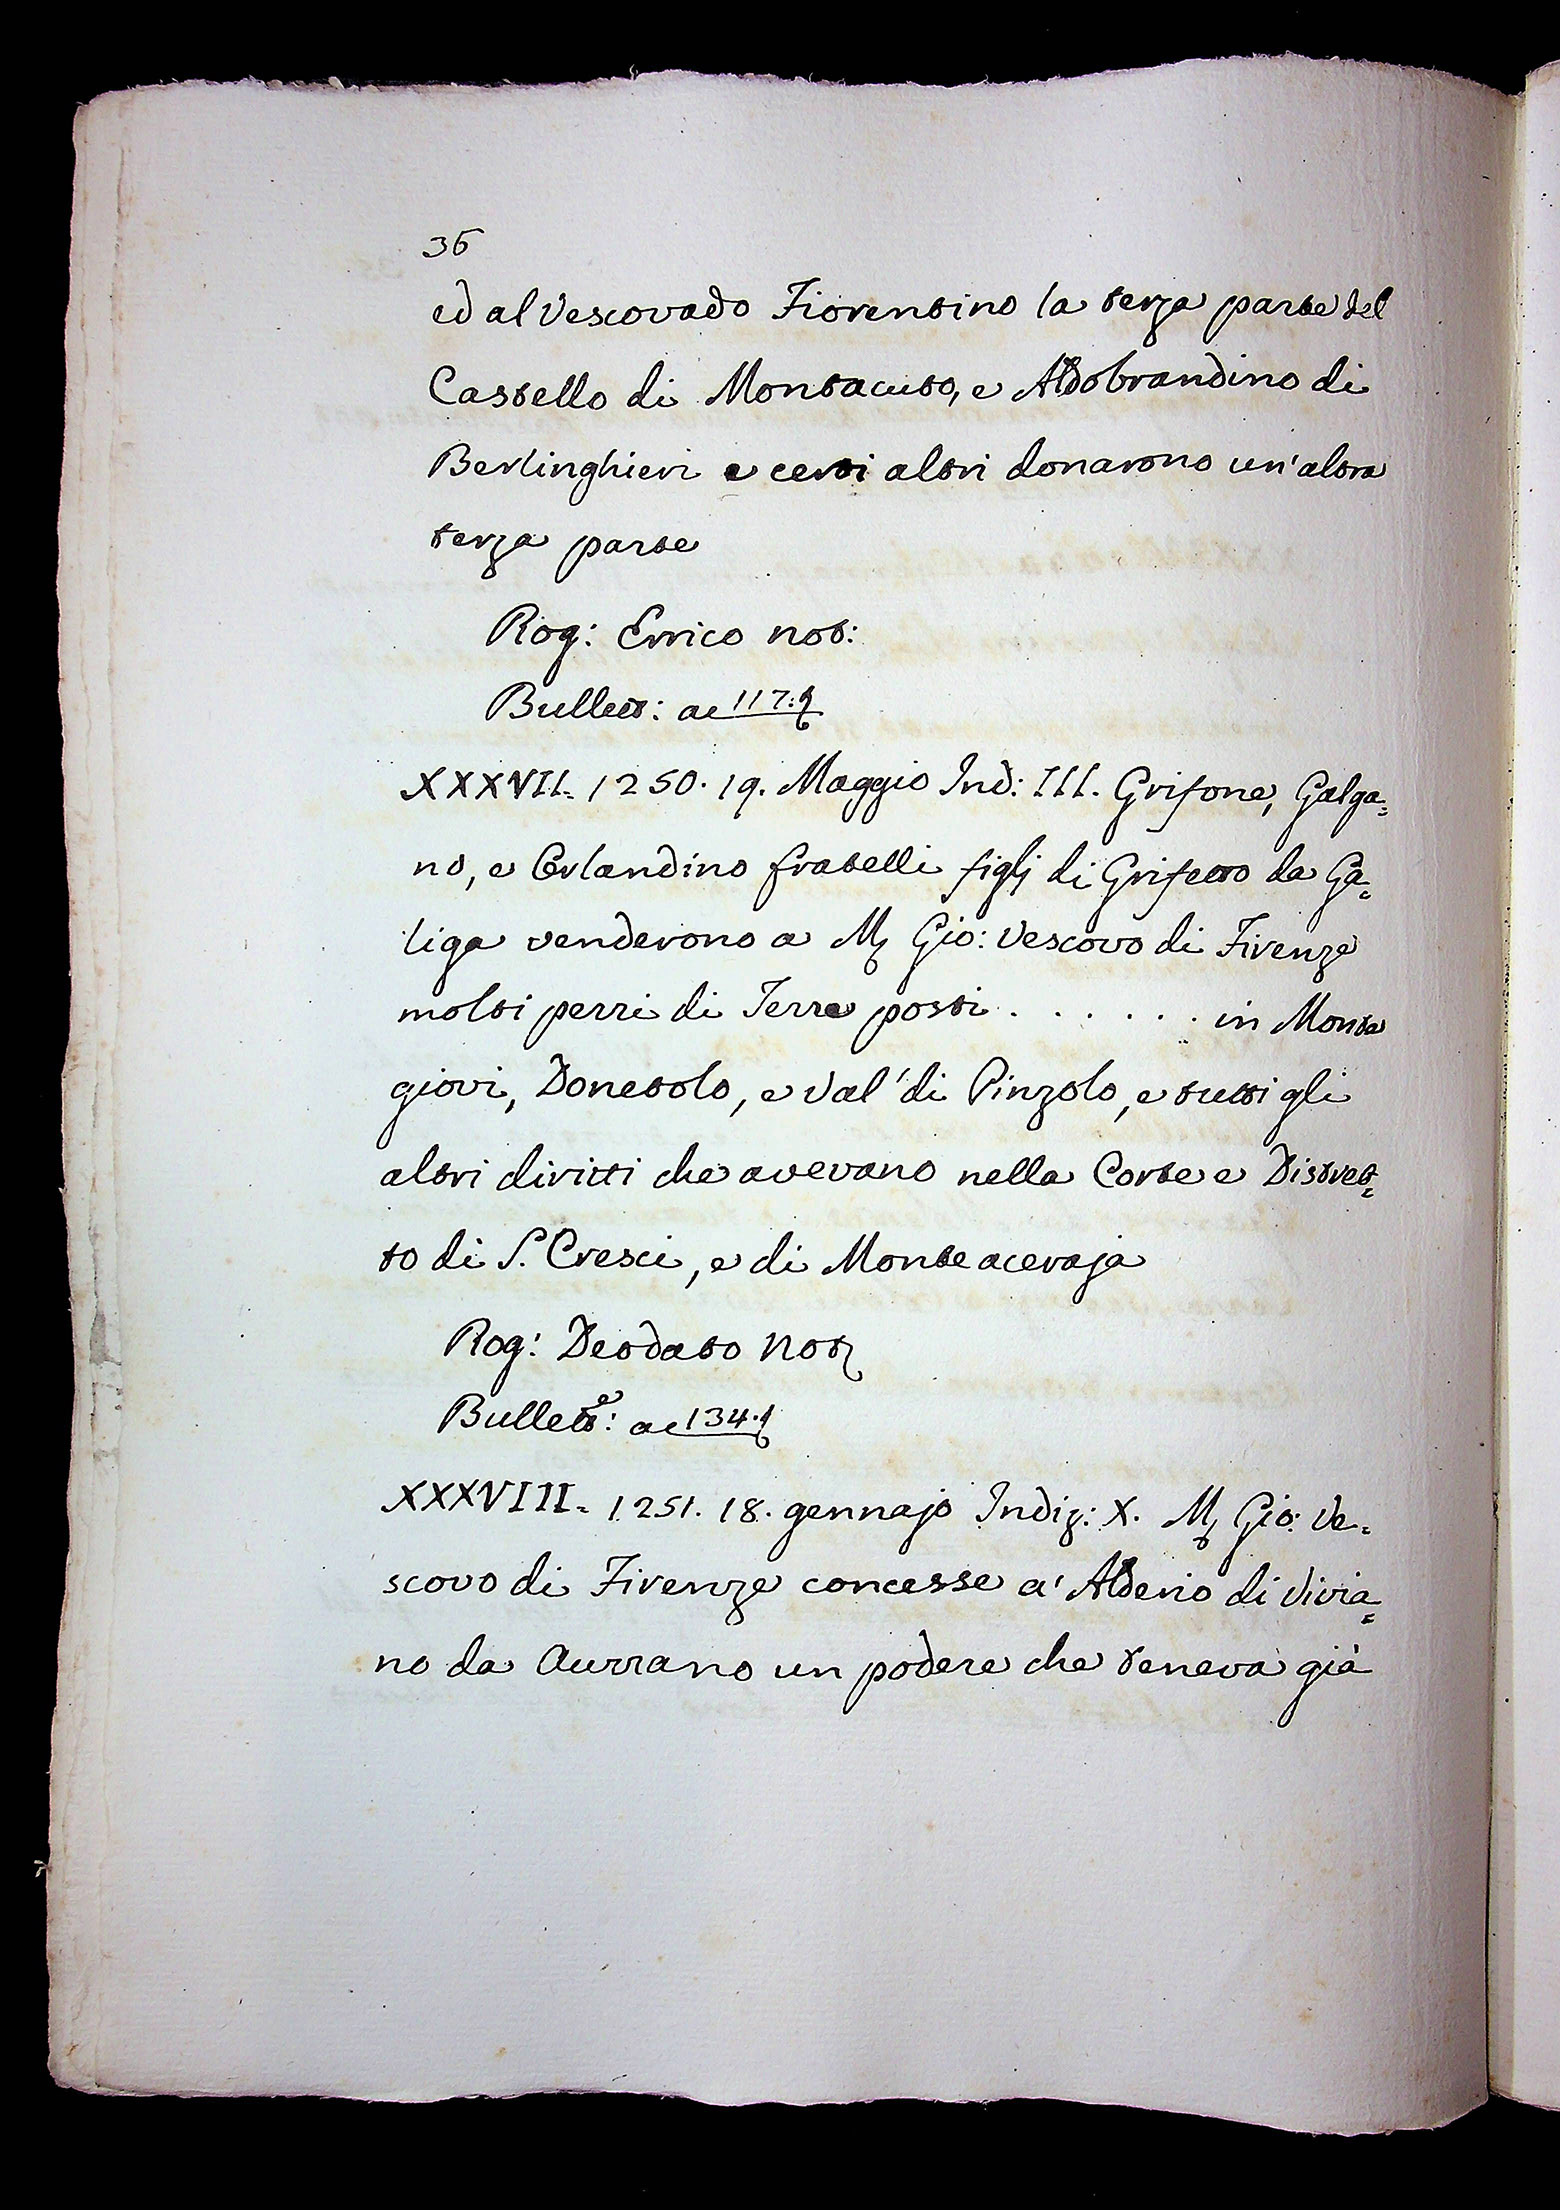 36
ed al Vescovado Fiorentino la terza parte del
Castello di Montacuto, e Aldobrandino di
Berlinghieri e certi altri donarono un' altra
terza parte
Rog: Errico not:
Bullett: ac 117:
XXXVII. 1250. 19. Maggio Ind: III. Grifone, Galga=
no, e Orlandino fratelli figlj di Grifetto da Ga=
liga venderono a M Gio: Vescovo di Firenze
molti pezzi di Terre posti . . . . . . in Monte
giovi, Donetolo, e Val' di Pinzolo, e tutti gli
altri diritti che avevano nella Corte e Distret=
to di S. Cresci, e di Monteaceraja
Rog: Deodato Not
Bullett: ac 134.
XXXVIII. 1251. 18. gennajo Indiz: X. M Gio: Ve=
scovo di Firenze concesse a' Alderio di Vivia=
no da Aurrano un podere che teneva già